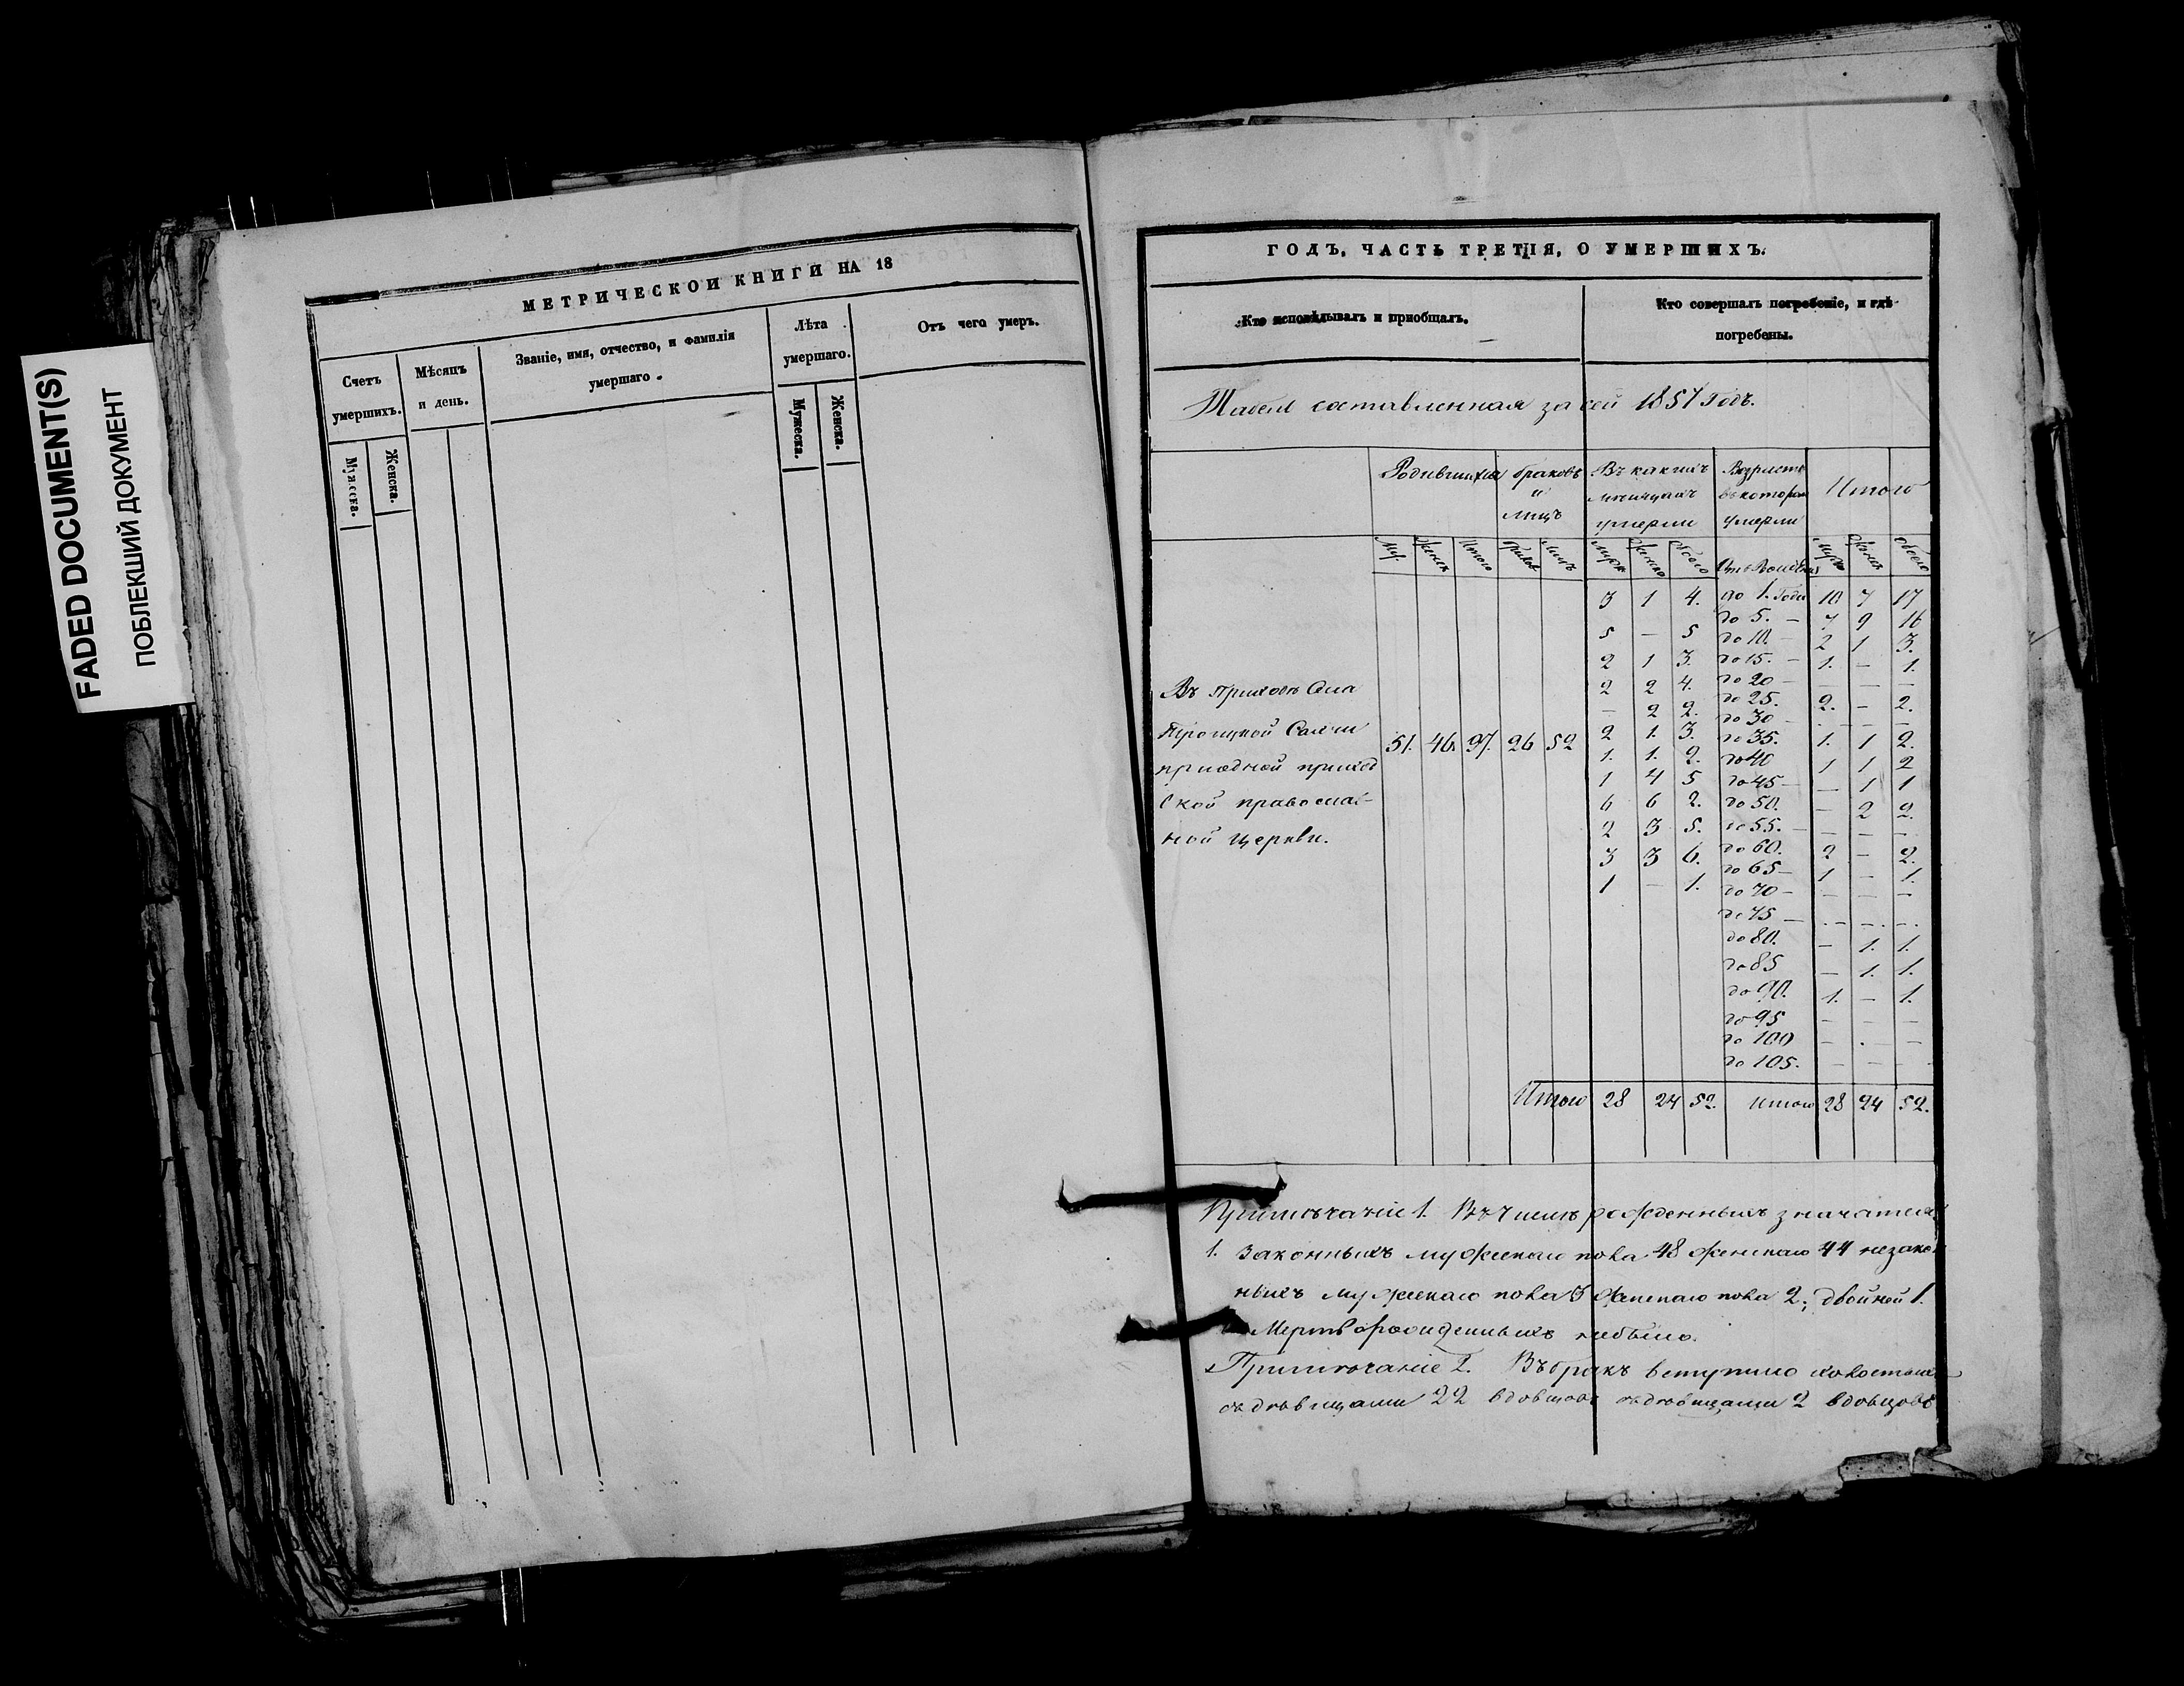 FADED DOCUMENT(S)
ПОБЛЕКШИЙ ДОКУМЕНТ
МЕТРИЧЕСКОЙ КНИГИ НА 18
Счетъ умершихъ.
Мѣсяцъ и день.
Званіе, имя, отчество, и фамилія
умершаго.
Лѣта умершаго.
Отъ чего умеръ.
Мужеска.
Женска.
Мужеска.
Женска.
ГОДЪ, ЧАСТЬ ТРЕТІЯ, О УМЕРШИХЪ.
Кто исповѣдывалъ и пріобщалъ.
Кто совершалъ погребеніе, и гдѣ
погребены.
составленная за сей 1857 годъ.
Родившихся
браковъ и лицъ
Въ какихъ мѣсяцахъ умерли
Возрастъ въ которомъ умерли
Итого
Муж. Женск. Итого
3 1 4. до 1. Года 10 7 17
до 5. – 7 9 16
5 — 5 до 10. – 2 1 3.
2 1 3. до 15. – 1. – 1.
2 2 4. до 20 – — — —
до 25. 2. – 2.
— 2 2. до 30 – — — —
2 1. 3. до 35. 1. 1 2.
1. 1. 2. до 40 1 1 2
1 4 5 до 45 – — 1 1
6 6 2. до 50. — 2 2.
2 3 5. до 55. – — — —
3 3 6. до 60. 2 – 2.
до 65 – 1 – 1.
1 — 1. до 70 – — — —
до 75 — — — —
до 80. — 1. 1.
до 85 — 1. 1.
до 90. 1. – 1.
до 95 — — —
до 100 — — —
до 105. — — —
Въ приходѣ
Троицкой
51. 46. 97. 26 52
ской православ-
ной церкви.
Итого 28 24 52. Итого 28 24 52.
Примѣчаніе 1. Въ числѣ рожденныхъ значатся
1. Законныхъ мужескаго пола 48 женскаго 44 незакон
ныхъ мужескаго пола 3 женскаго пола 2; двойней 1.
Мертворожденныхъ небыло.
Примѣчаніе 2. Въ бракъ вступило холостыхъ
съ дѣвицами 22 вдовцовъ съ дѣвицами 2 вдовцовъ